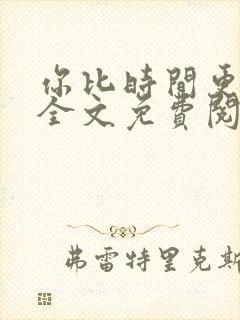 你比時間更
全文免費閱
弗雷特里克斯